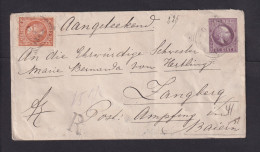 Aangeteekend 521
An die Ehrwürdige Schwester
Maria Bernarda von Hertling
Zangberg
Post: Ampfing in
Baiern
R